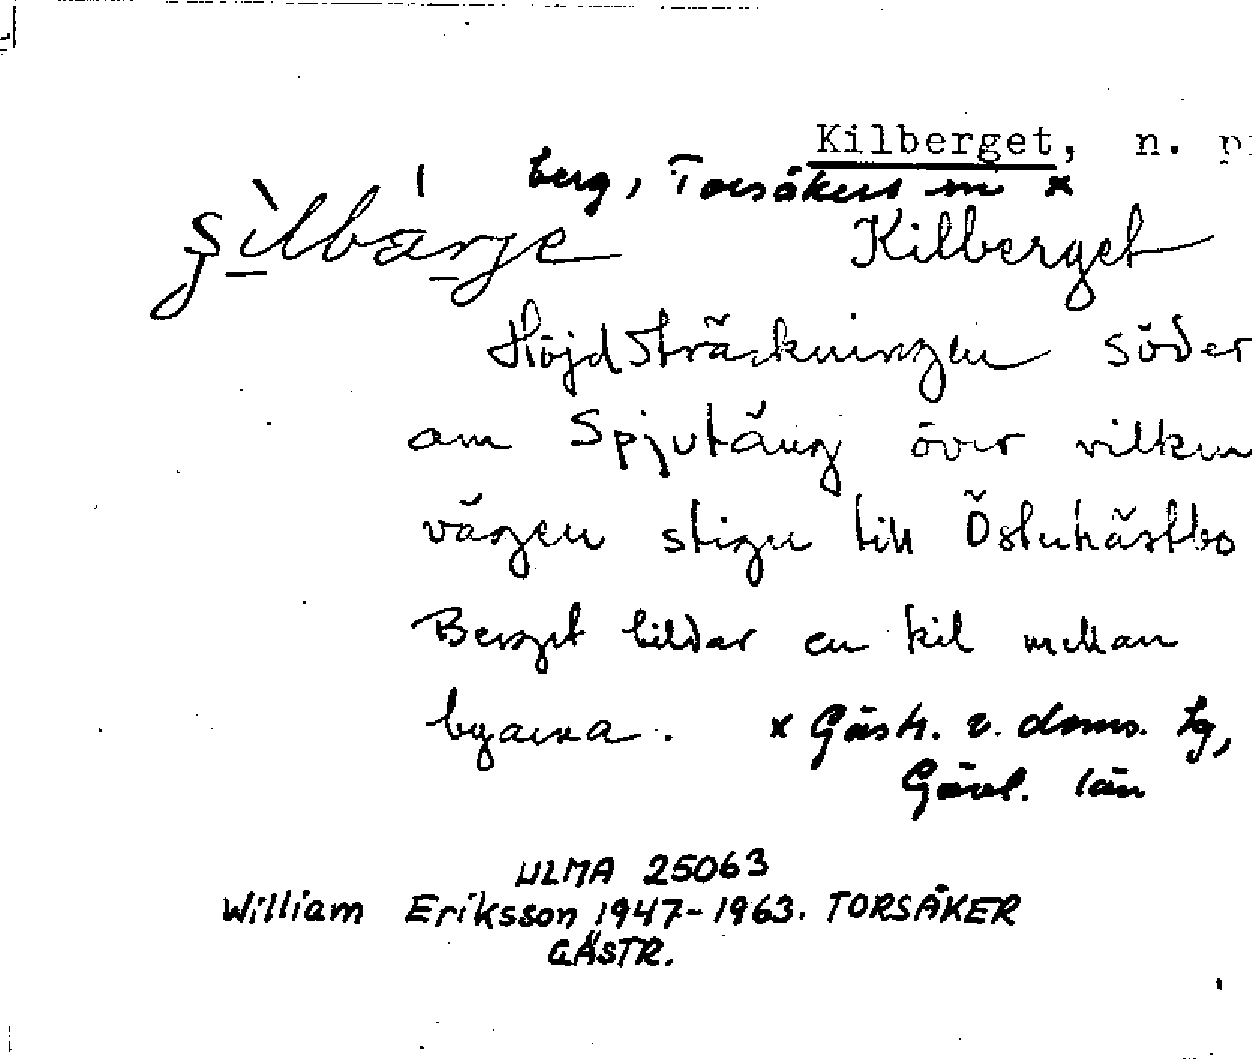 Kilberget, n. pr
berg, Torsåkers sn x
Kilberget
Höjdsträckningen söder
om Spjutäng över vilken
vägen stiger till Östuhästbo
Berget bildar en kil mellan
byarna. x Gästr. v. doms. tg,
Gävl. län
ULMA 25063
William Eriksson 1947-1963. TORSÅKER
GÄSTR.